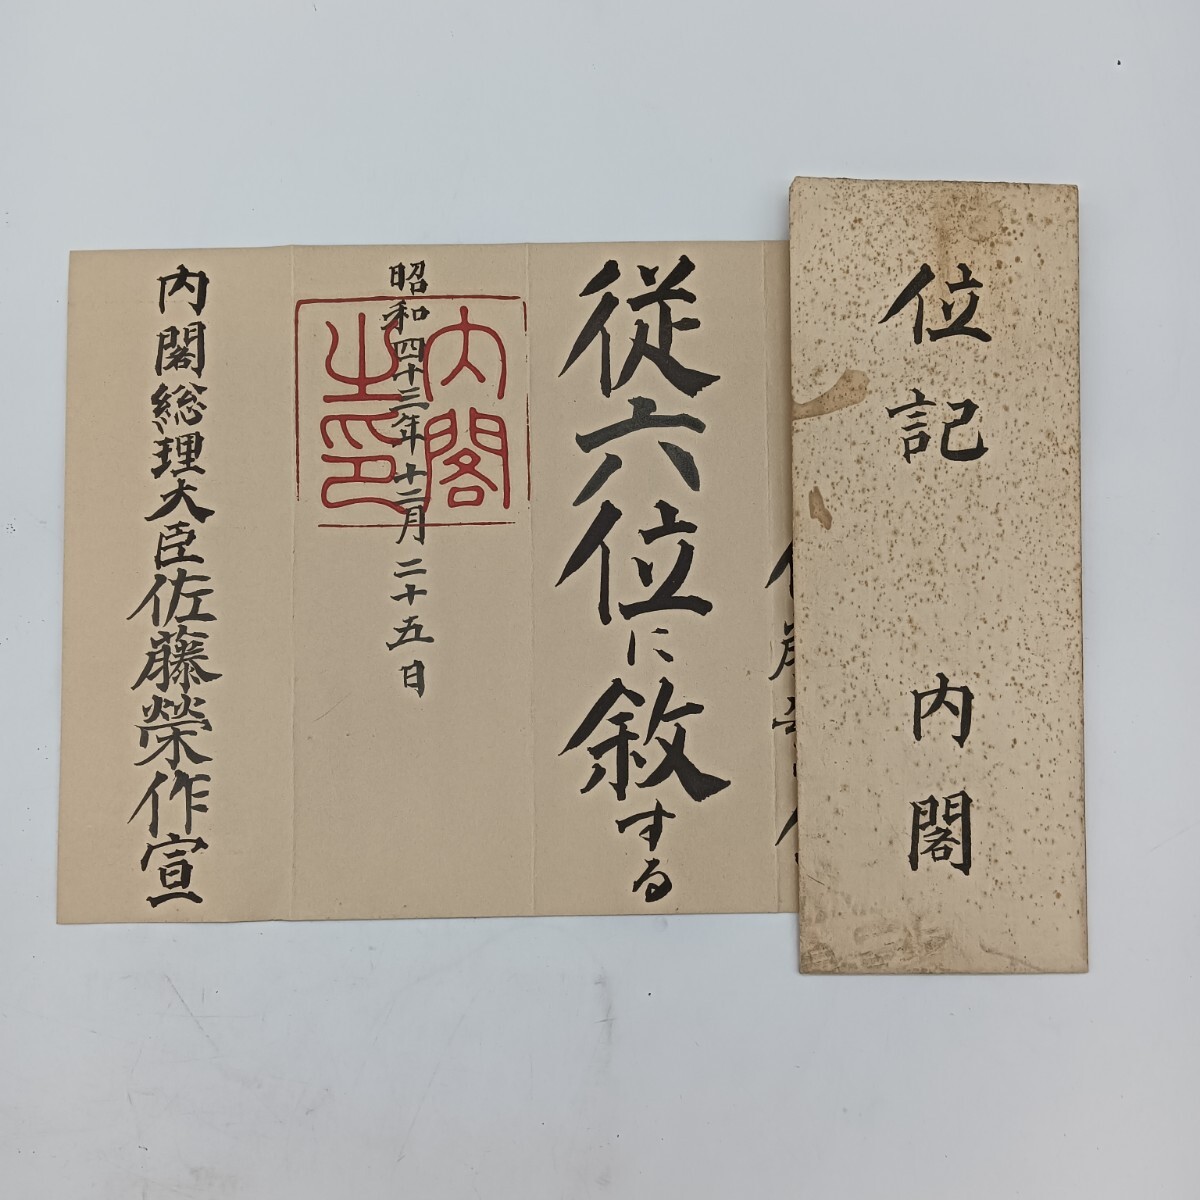 位記 内閣
従六位に敘する
昭和四十三年十二月二十五日
内閣之印
内閣総理大臣佐藤榮作宣